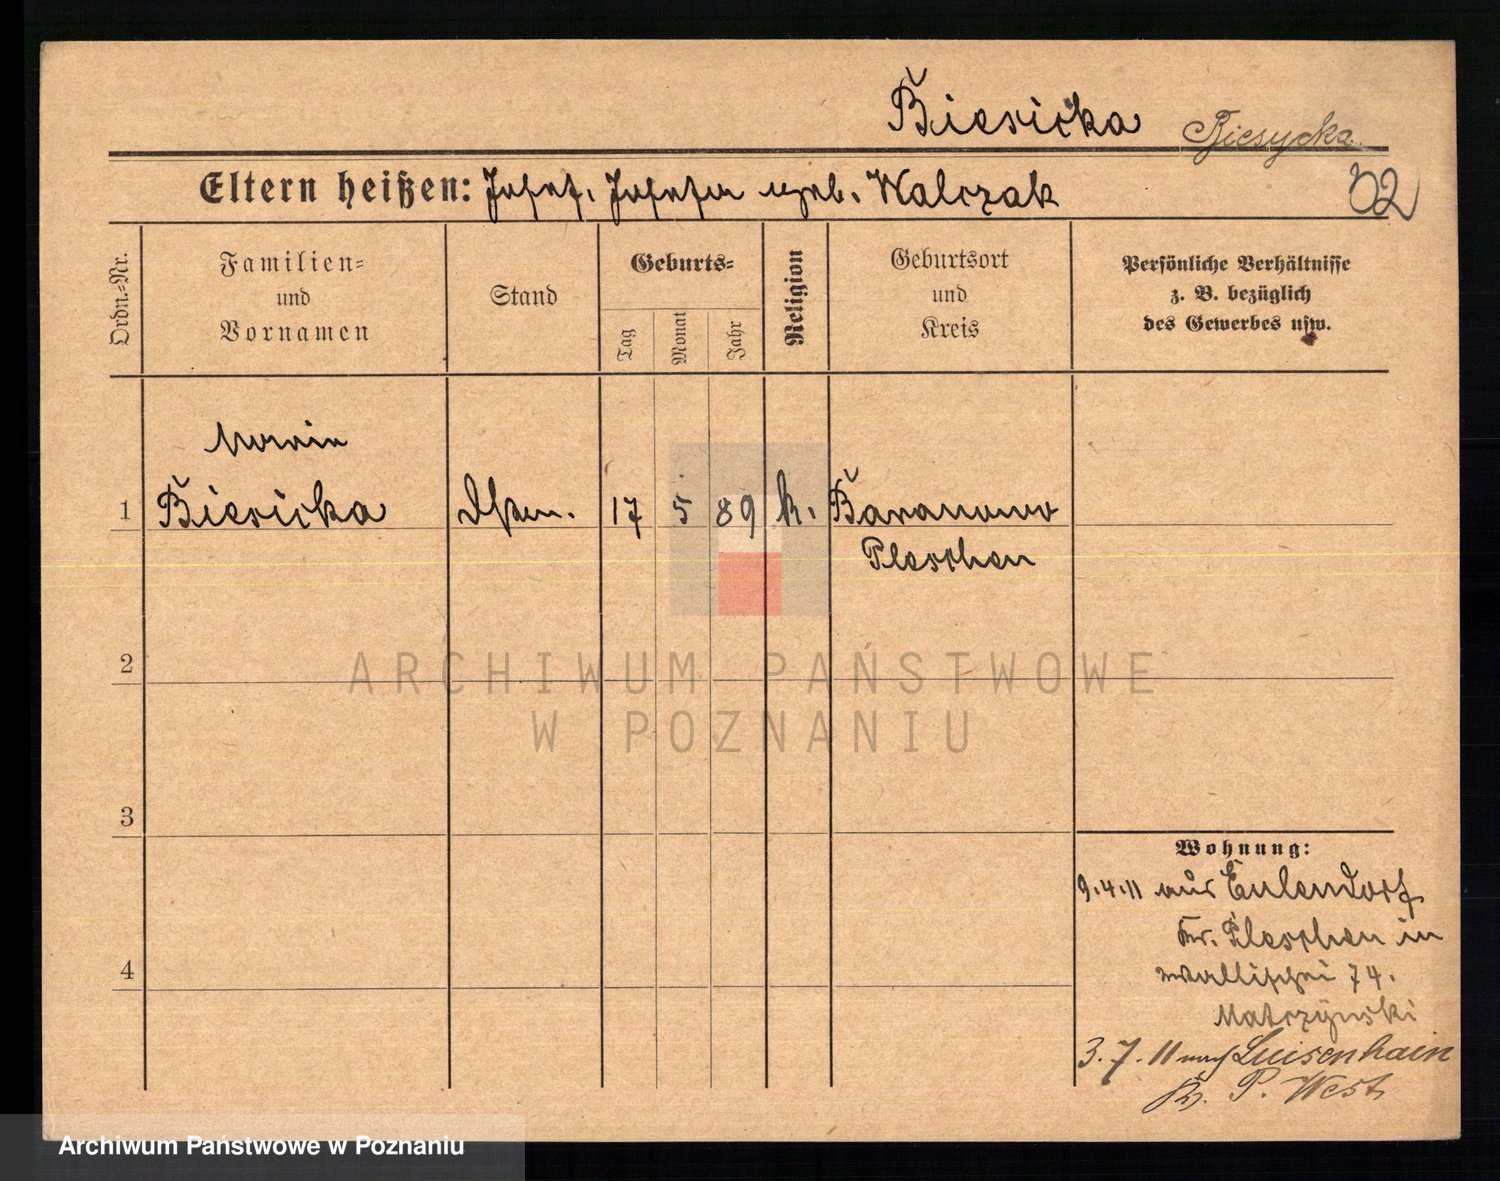 Biesicka Biesycka
Eltern heißen: Josef, Josefa geb. Walczak 02
Ordn.-Nr.
Familien-
und
Vornamen
Stand
Geburts-
Tag
Monat
Jahr
Religion
Geburtsort
und
Kreis
Persönliche Verhältnisse
z. B. bezüglich
des Gewerbes usw.
Maria
1 Biesicka 17 5 89 k. Baranowo
Pleschen
2
3
4
Wohnung:
9.4.11 aus Eulendorf
Kr. Pleschen in
Wallischei 74.
Matczynski
3.7.11 nach Luisenhain
Kr. P. West
ARCHIWUM PAŃSTWOWE
W POZNANIU
Archiwum Państwowe w Poznaniu